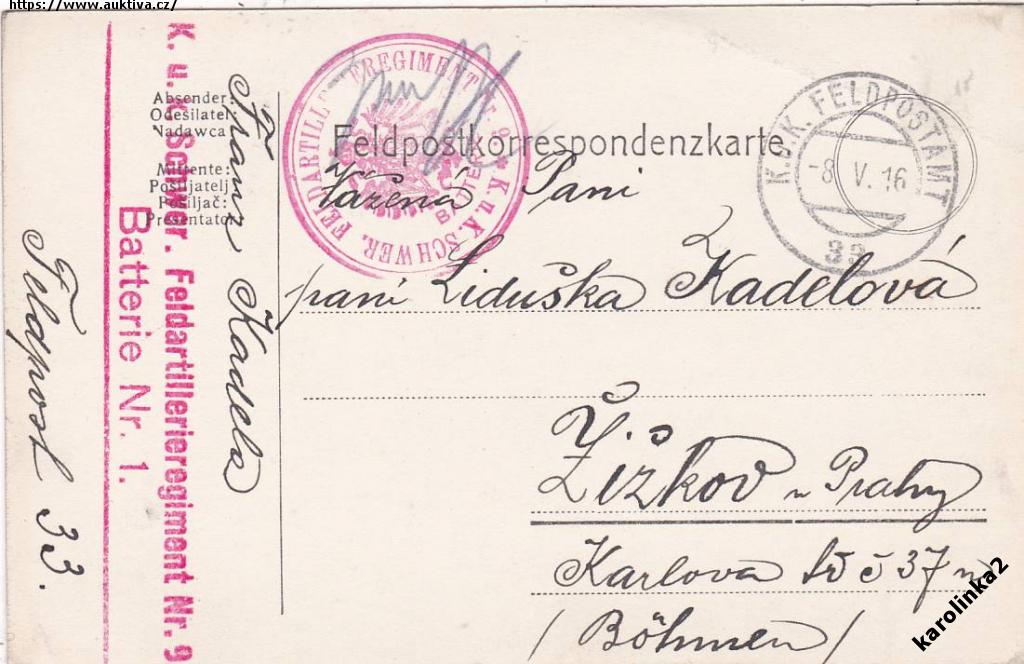 https://www.auktiva.cz/
Feldpostkorrespondenzkarte
Absender:
Odesílatel:
Nadawca
Mittente:
Pošiljatelj
Pošiljač:
Presentator
Franz Kadela
Feldpost 33.
K. u. K. Schwer. Feldartillerieregiment Nr. 9
Batterie Nr. 1.
K. u. K. SCHWER. FELDARTILLERIEREGIMENT Nr. 9
BATTERIE
K.U.K. FELDPOSTAMT
-8. V. 16
33
Vážená Paní
paní Liduška Kadelová
Žižkov u Prahy
Karlova tř č 37 n
/Böhmen/
karolinka2